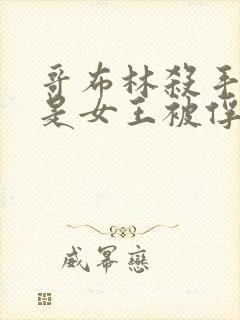 哥布林殺手
是女王被俘
威冪戀